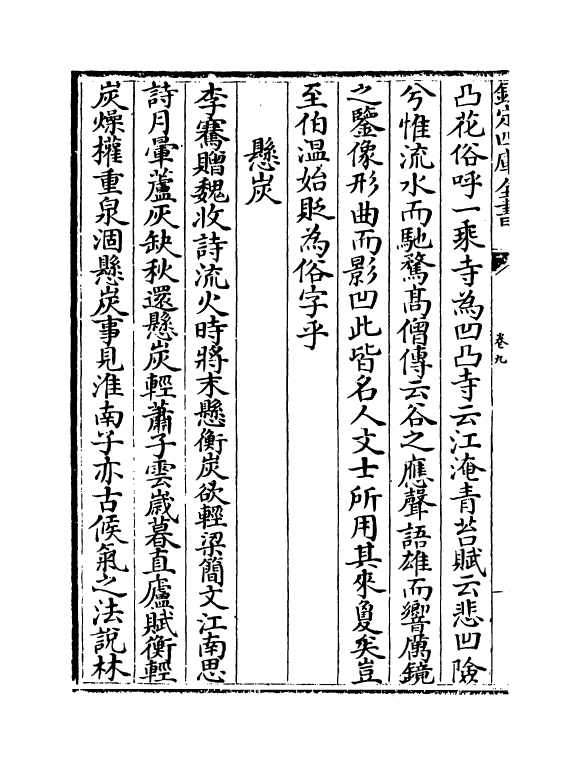 欽定四庫全書
卷九
凸花俗呼一乘寺為凹凸寺云江淹青苔賦云悲凹險
兮惟流水而馳騖髙僧傳云谷之應聲語雄而響厲鏡
之鑒像形曲而影凹此皆名人文士所用其來夐矣豈
至伯温始貶為俗字乎
懸炭
李騫贈魏收詩流火時將末懸衡炭欲輕梁簡文江南思
詩月暈蘆灰缺秋還懸炭輕蕭子雲歲暮直廬賦衡輕
炭燥權重泉涸懸炭事見淮南子亦古候氣之法說林